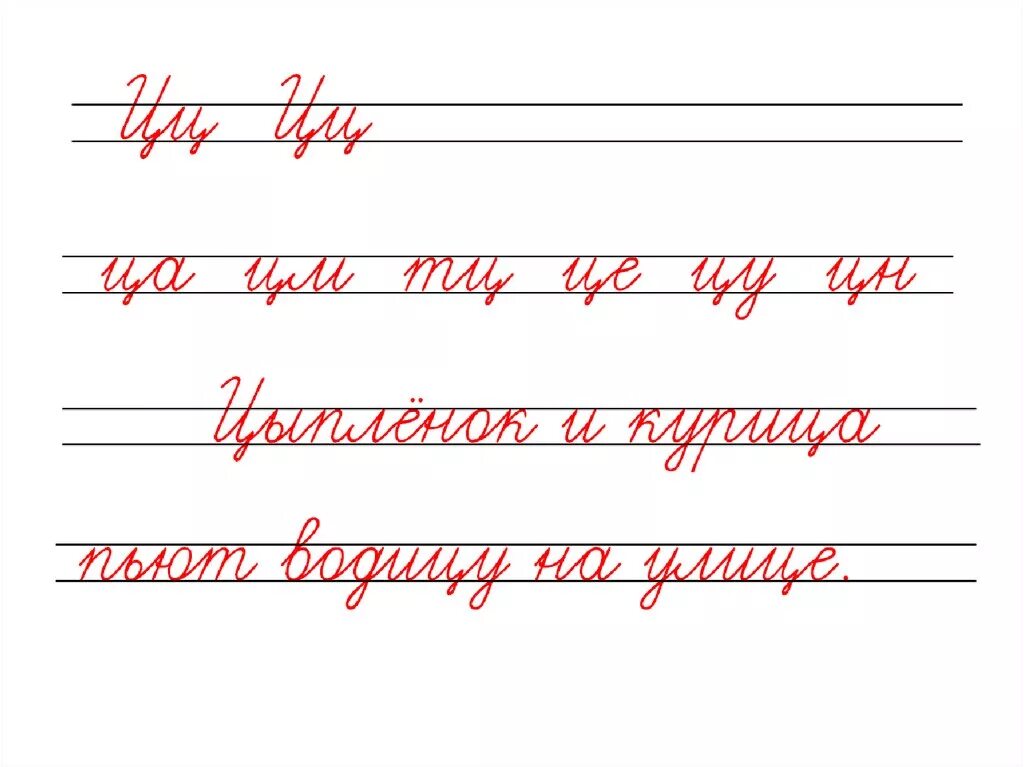 Цц Цц
ца цм тц це цу цн
Цыплёнок и курица
пьют водицу на улице.